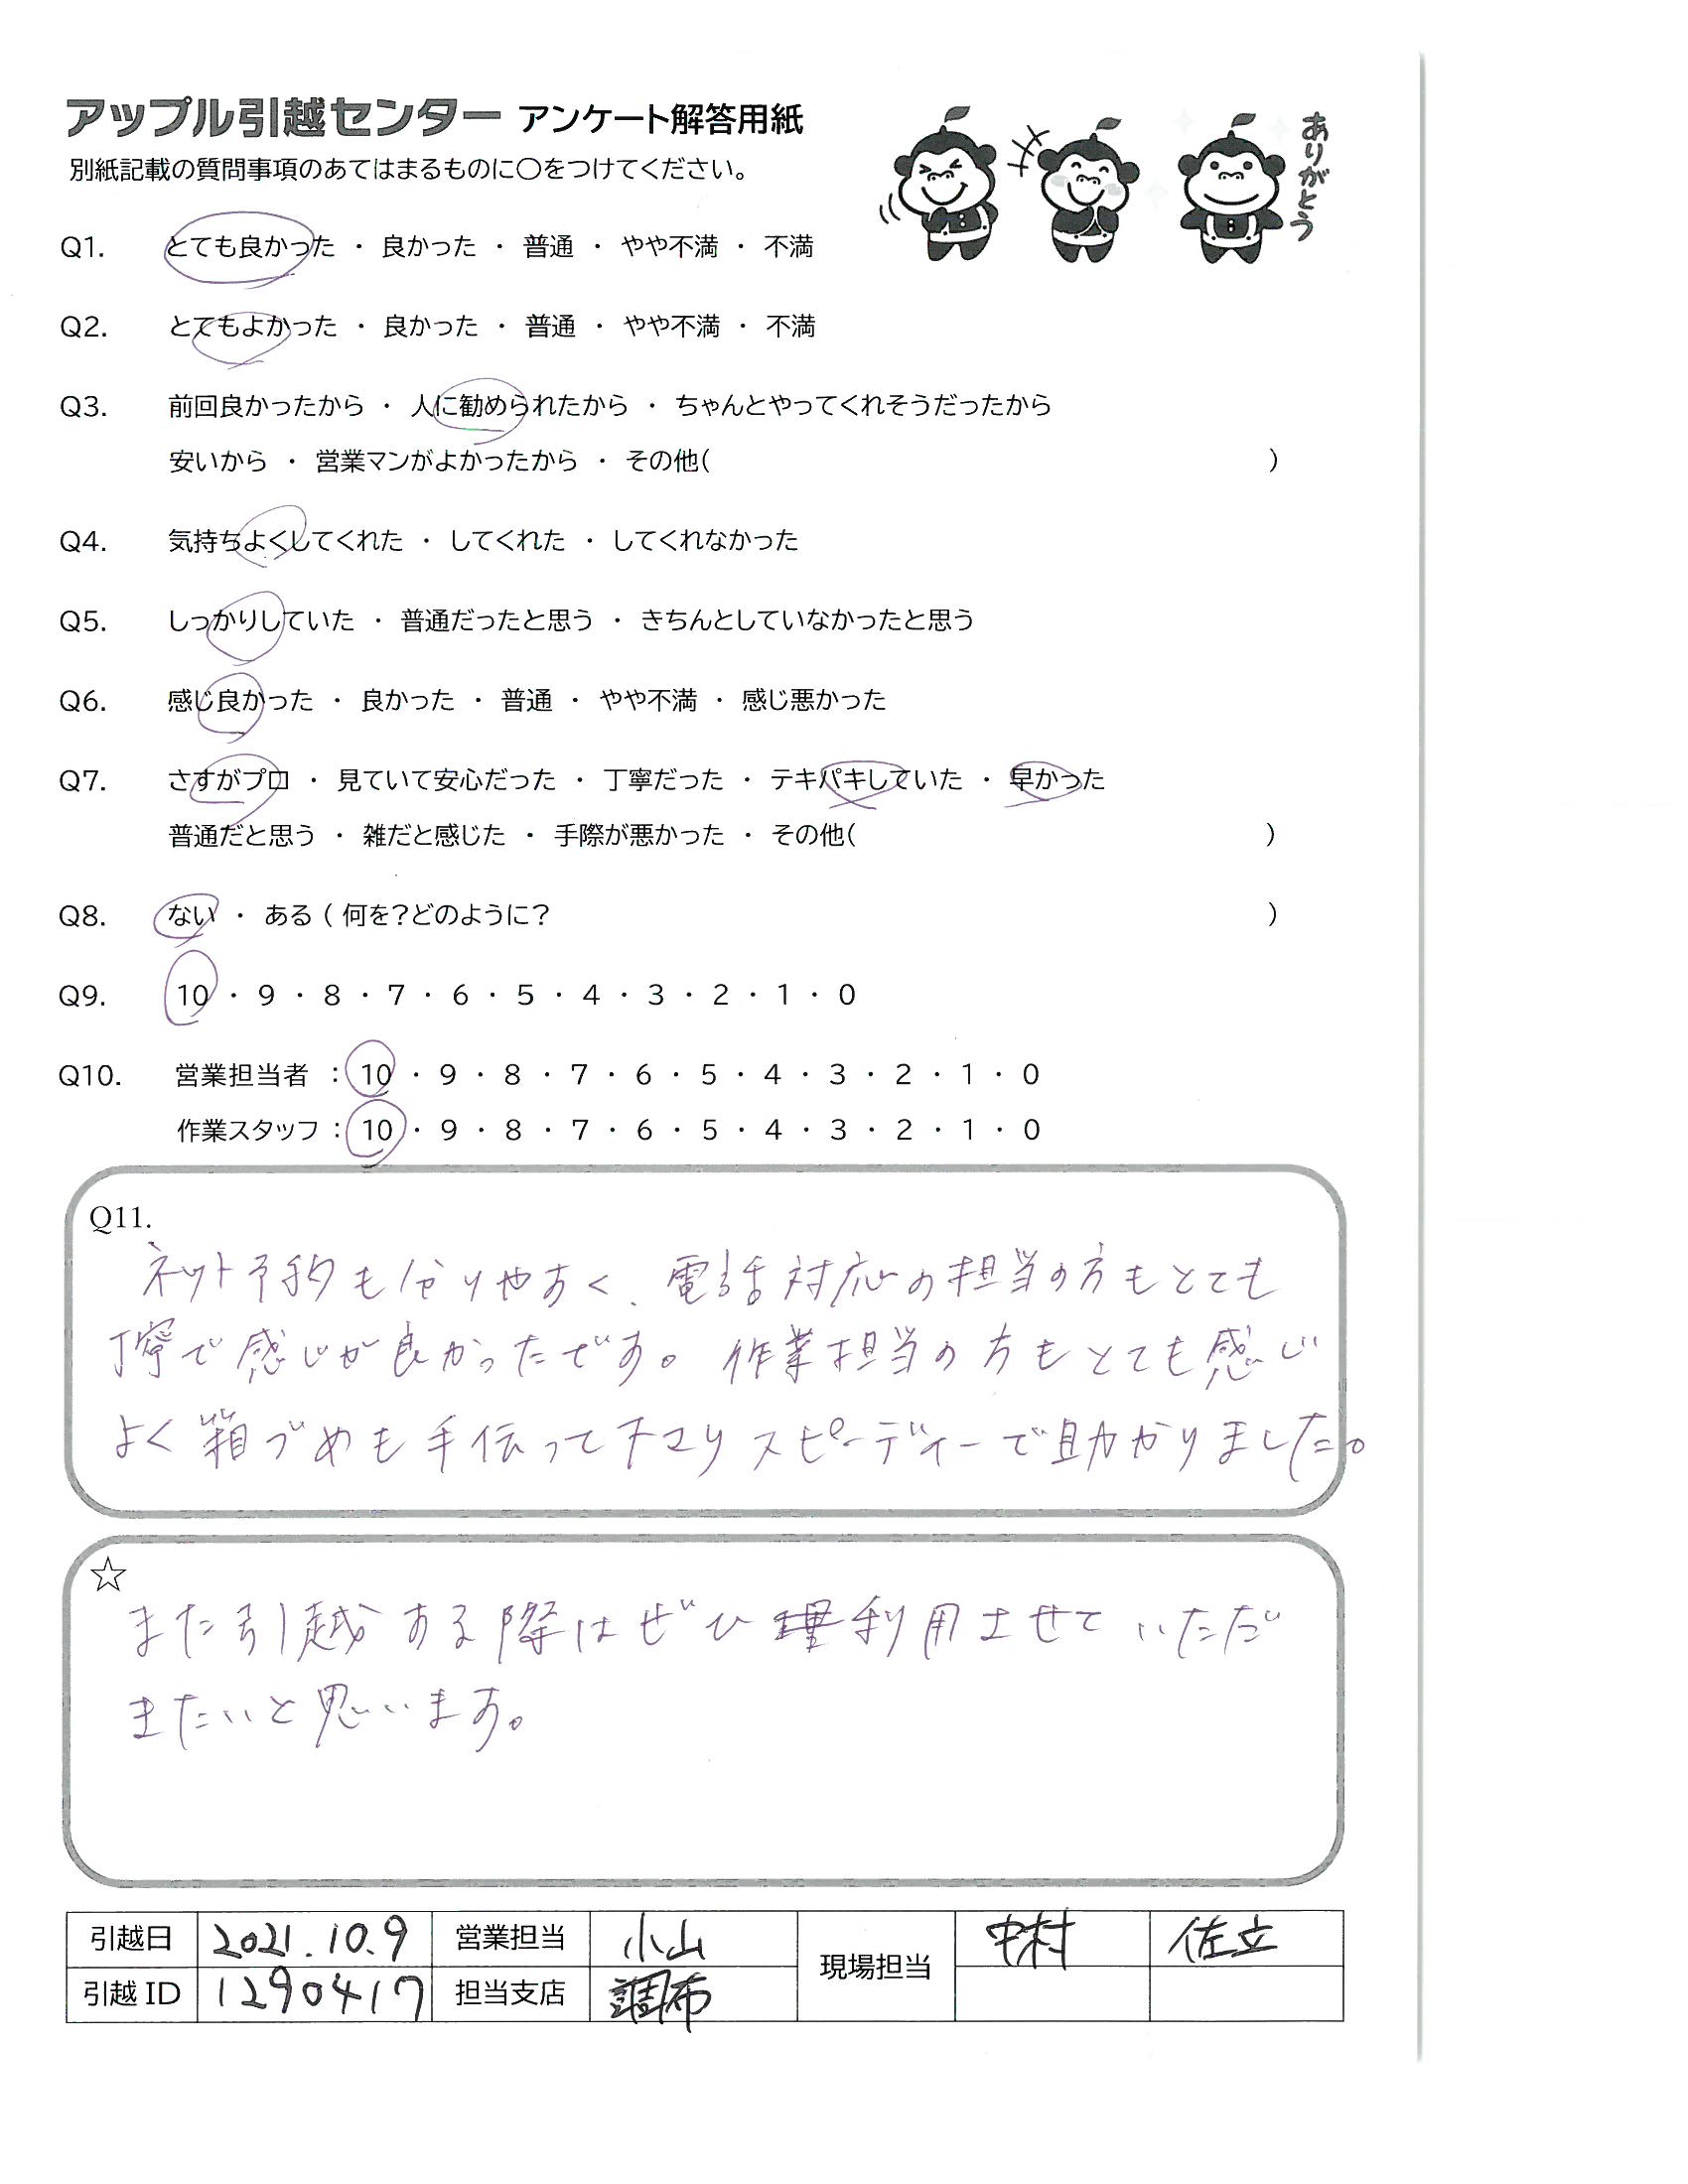 アップル引越センター アンケート解答用紙
別紙記載の質問事項のあてはまるものに○をつけてください。
ありがとう
Q1. とても良かった ・ 良かった ・ 普通 ・ やや不満 ・ 不満
Q2. とてもよかった ・ 良かった ・ 普通 ・ やや不満 ・ 不満
Q3. 前回良かったから ・ 人に勧められたから ・ ちゃんとやってくれそうだったから
安いから ・ 営業マンがよかったから ・ その他( )
Q4. 気持ちよくしてくれた ・ してくれた ・ してくれなかった
Q5. しっかりしていた ・ 普通だったと思う ・ きちんとしていなかったと思う
Q6. 感じ良かった ・ 良かった ・ 普通 ・ やや不満 ・ 感じ悪かった
Q7. さすがプロ ・ 見ていて安心だった ・ 丁寧だった ・ テキパキしていた ・ 早かった
普通だと思う ・ 雑だと感じた ・ 手際が悪かった ・ その他( )
Q8. ない ・ ある ( 何を?どのように? )
Q9. 10 ・ 9 ・ 8 ・ 7 ・ 6 ・ 5 ・ 4 ・ 3 ・ 2 ・ 1 ・ 0
Q10. 営業担当者 : 10 ・ 9 ・ 8 ・ 7 ・ 6 ・ 5 ・ 4 ・ 3 ・ 2 ・ 1 ・ 0
作業スタッフ : 10 ・ 9 ・ 8 ・ 7 ・ 6 ・ 5 ・ 4 ・ 3 ・ 2 ・ 1 ・ 0
Q11.
ネット予約も分りやすく、電話対応の担当の方もとても
丁寧で感じが良かったです。作業担当の方もとても感じ
よく箱づめも手伝って下さりスピーディーで助かりました。
☆
また引越する際はぜひ利用させていただ
きたいと思います。
引越日 2021.10.9 営業担当 小山 現場担当 中村 佐立
引越 ID 1290417 担当支店 調布